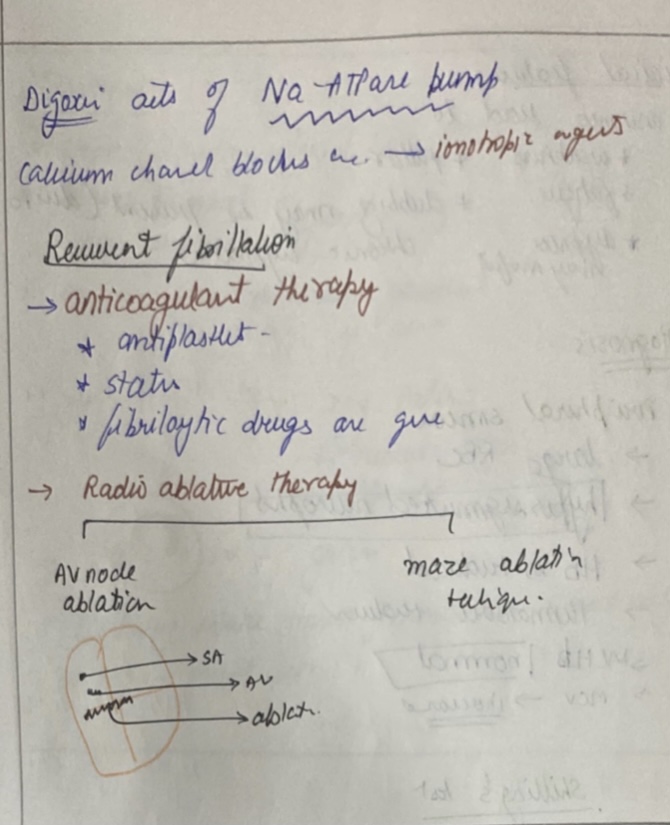 Digoxin acts of Na-ATPase pump
calcium chanel blocks are. → ionotropic agents
Recurrent fibrillation
→ anticoagulant therapy
* antiplastlet -
* statin
* fibriloytic drugs are give
→ Radio ablative therapy
AV node
ablation
maze ablatin
tenique.
SA
AV
ablatn.